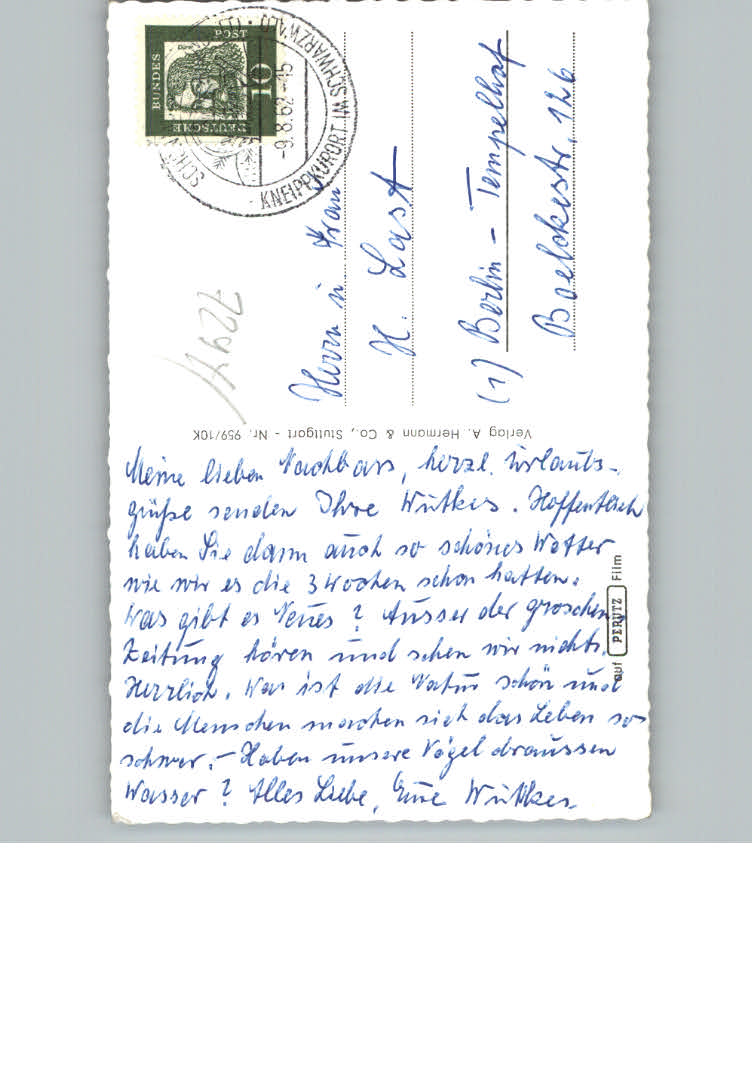 DEUTSCHE
BUNDES
POST
Dürer
10
KNEIPPKURORT IM SCHWARZWALD
-9.8.62-15
Herrn u Frau
H. Last
(1) Berlin - Tempelhof
Boelckestr. 126
Verlag A. Hermann & Co., Stuttgart - Nr. 959/10K
Meine lieben Nachbars, herzl. Urlaubs-
grüße senden Ihre Wutkes. Hoffentlich
haben Sie dann auch so schönes Wetter
wie wir es die 3 Wochen schon hatten.
Was gibt es Neues? Ausser der groschen
Zeitung hören und sehen wir nichts.
Herrlich. Was ist die Natur schön und
die Menschen machen sich das Leben so
schwer. - Haben unsere Vögel draussen
Wasser? Alles Liebe, Eure Wutkes.
auf PERUTZ Film